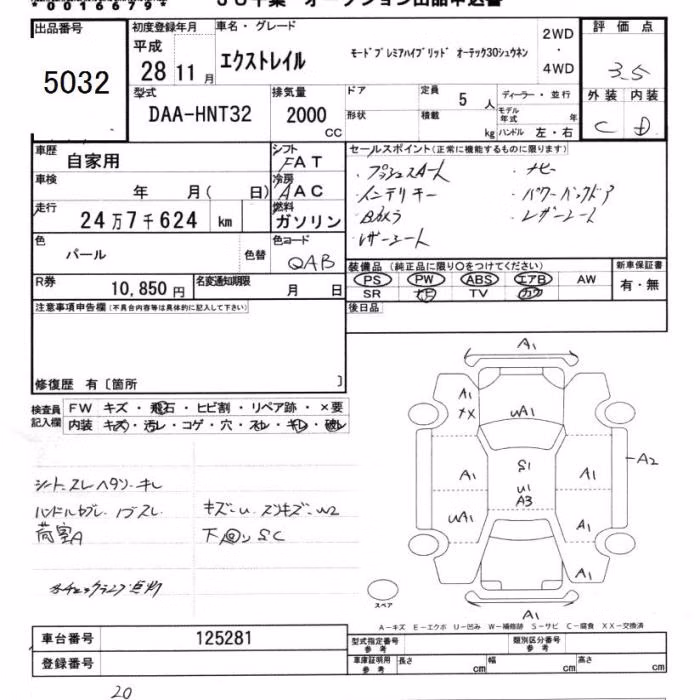 00166794
JU千葉 オークション出品申込書
出品番号
5032
初度登録年月
平成
28 11 月
車名・グレード
エクストレイル
モードプレミアハイブリッド オーテック30シュウネン
2WD
・
4WD
評価点
3.5
外装 内装
C D
型式
DAA-HNT32
排気量
2000
CC
ドア
形状
定員
5 人
積載
kg
ディーラー・並行
モデル年式 年
ハンドル 左・右
車歴
自家用
シフト
FAT
車検
年 月( 日)
冷房
AAC
走行
24万7千624 km
燃料
ガソリン
色
パール
色替
色コード
QAB
R券
10,850 円
名変通知期限
月 日
セールスポイント(正常に機能するものに限ります)
・プッシュスタート ・ナビー
・インテリキー ・パワーバックドア
・Bカメラ ・レザーシート
・レザーシート
装備品 (純正品に限り○をつけてください)
PS PW ABS エアB AW
SR ナビ TV カワ
新車保証書
有・無
後日品
注意事項申告欄(不具合内容等は具体的に記入して下さい)
修復歴 有〔箇所 〕
検査員
記入欄
FW キズ・飛石・ヒビ割・リペア跡・×要
内装 キズ・汚レ・コゲ・穴・スレ・キレ・破レ
シート.スレ ヘタリ.キレ
荷室A
キズ-U
下回りSC
A1
A1
uA1
A1
S1
u1
A3
A1
A2
uA1
A1
A1
A1
スペア
A-キズ E-エクボ U-凹み W-補修跡 S-サビ C-腐食 XX-交換済
車台番号
125281
登録番号
型式指定番号
参考
類別区分番号
参考
車庫証明用
参考
長さ cm
幅 cm
高さ cm
20